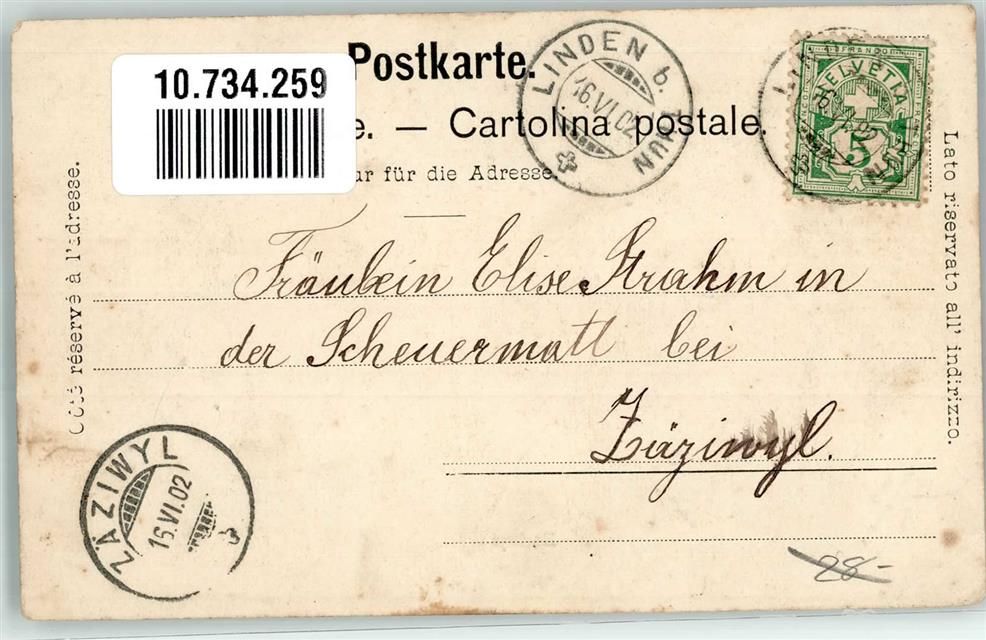 Postkarte.
10.734.259
e. — Cartolina postale.
ur für die Adresse.
LINDEN b. THUN
16.VI.02
FRANCO
HELVETIA
5
16.VI.02
Côté réservé à l'adresse.
Lato riservato all' indirizzo.
Fräulein Elise Strahm in
der Scheuermatt bei
Zäziwyl.
ZÄZIWYL
16.VI.02
28-